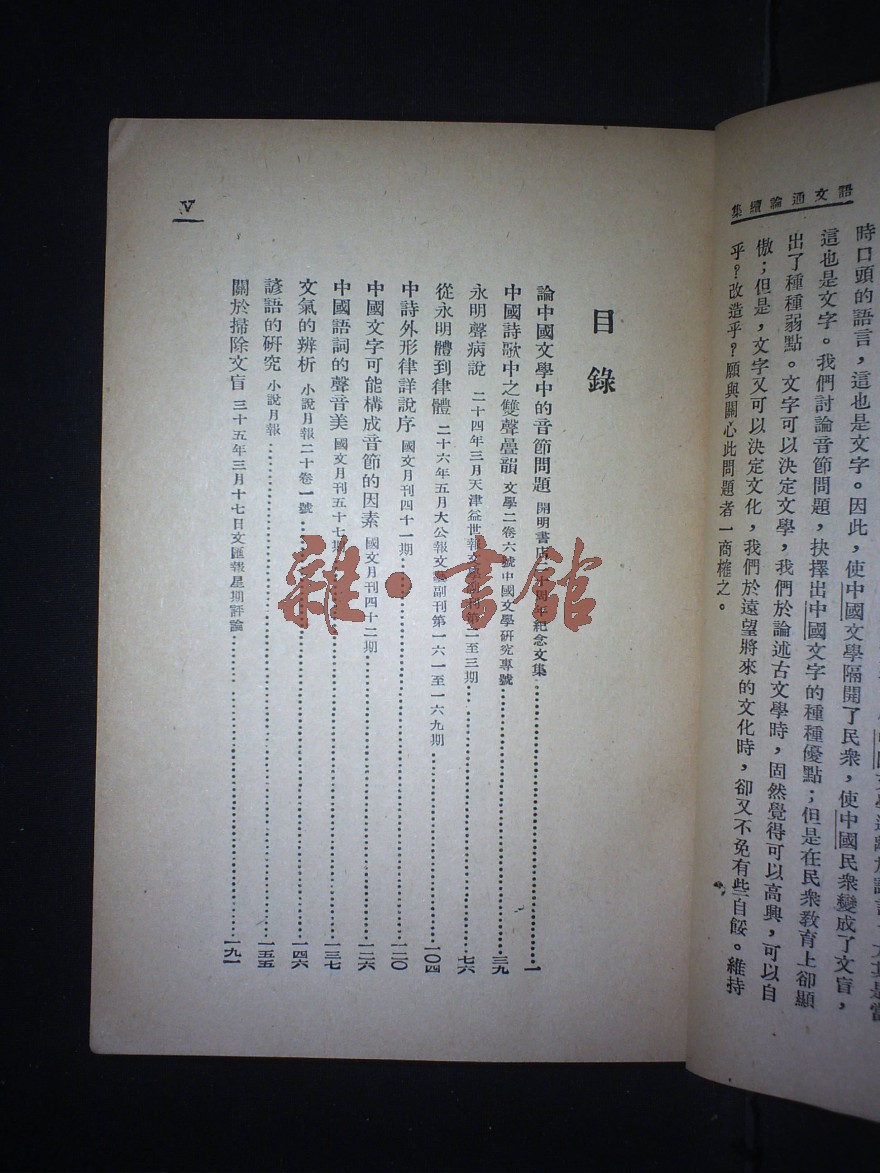 語文通論續集
時口頭的語言，這也是文字。因此，使中國文學隔開了民衆，使中國民衆變成了文盲，
這也是文字。我們討論音節問題，抉擇出中國文字的種種優點；但是在民衆教育上卻顯
出了種種弱點。文字可以決定文學，我們於論述古文學時，固然覺得可以高興，可以自
傲；但是，文字又可以決定文化，我們於遠望將來的文化時，卻又不免有些自餒。維持
乎？改造乎？願與關心此問題者一商榷之。
目錄
論中國文學中的音節問題 開明書店二十周年紀念文集 一
中國詩歌中之雙聲疊韻 文學二卷六號中國文學研究專號 三九
永明聲病說 二十四年三月天津益世報文學副刊第二至三期 七六
從永明體到律體 二十六年五月大公報文藝副刊第一六一至一六九期 一〇四
中詩外形律詳說序 國文月刊四十一期 一二〇
中國文字可能構成音節的因素 國文月刊四十二期 一二六
中國語詞的聲音美 國文月刊五十七期 一三七
文氣的辨析 小說月報二十卷一號 一四六
諺語的研究 小說月報 一五五
關於掃除文盲 三十五年三月十七日文匯報星期評論 一九一
V
雜·書館